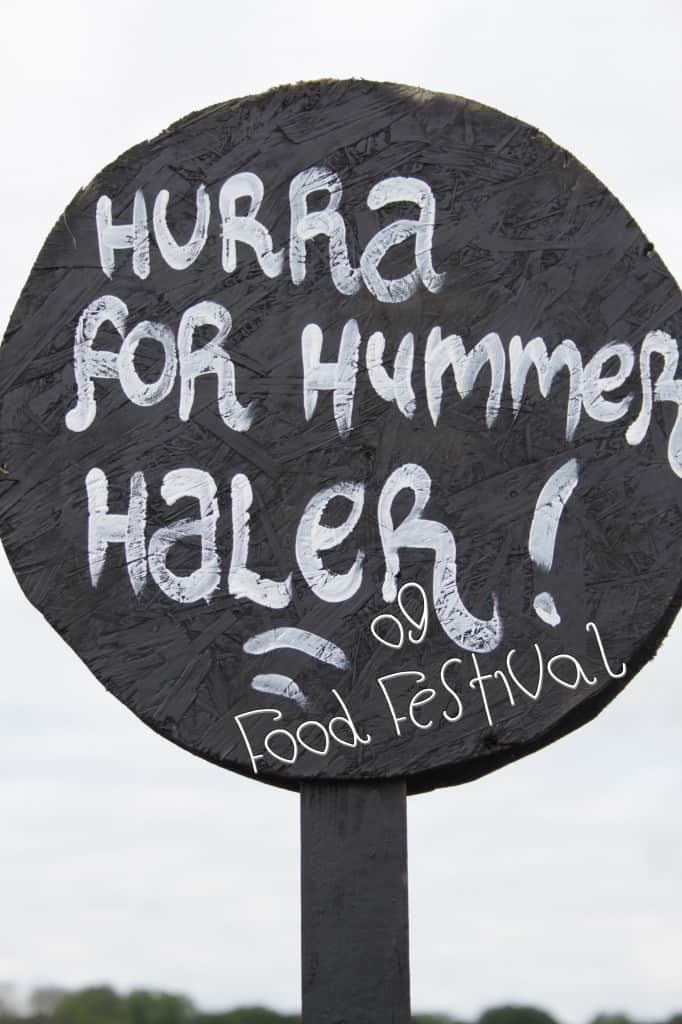 HURRa
FOR HUMMER
HaLER!
og
Food Festival